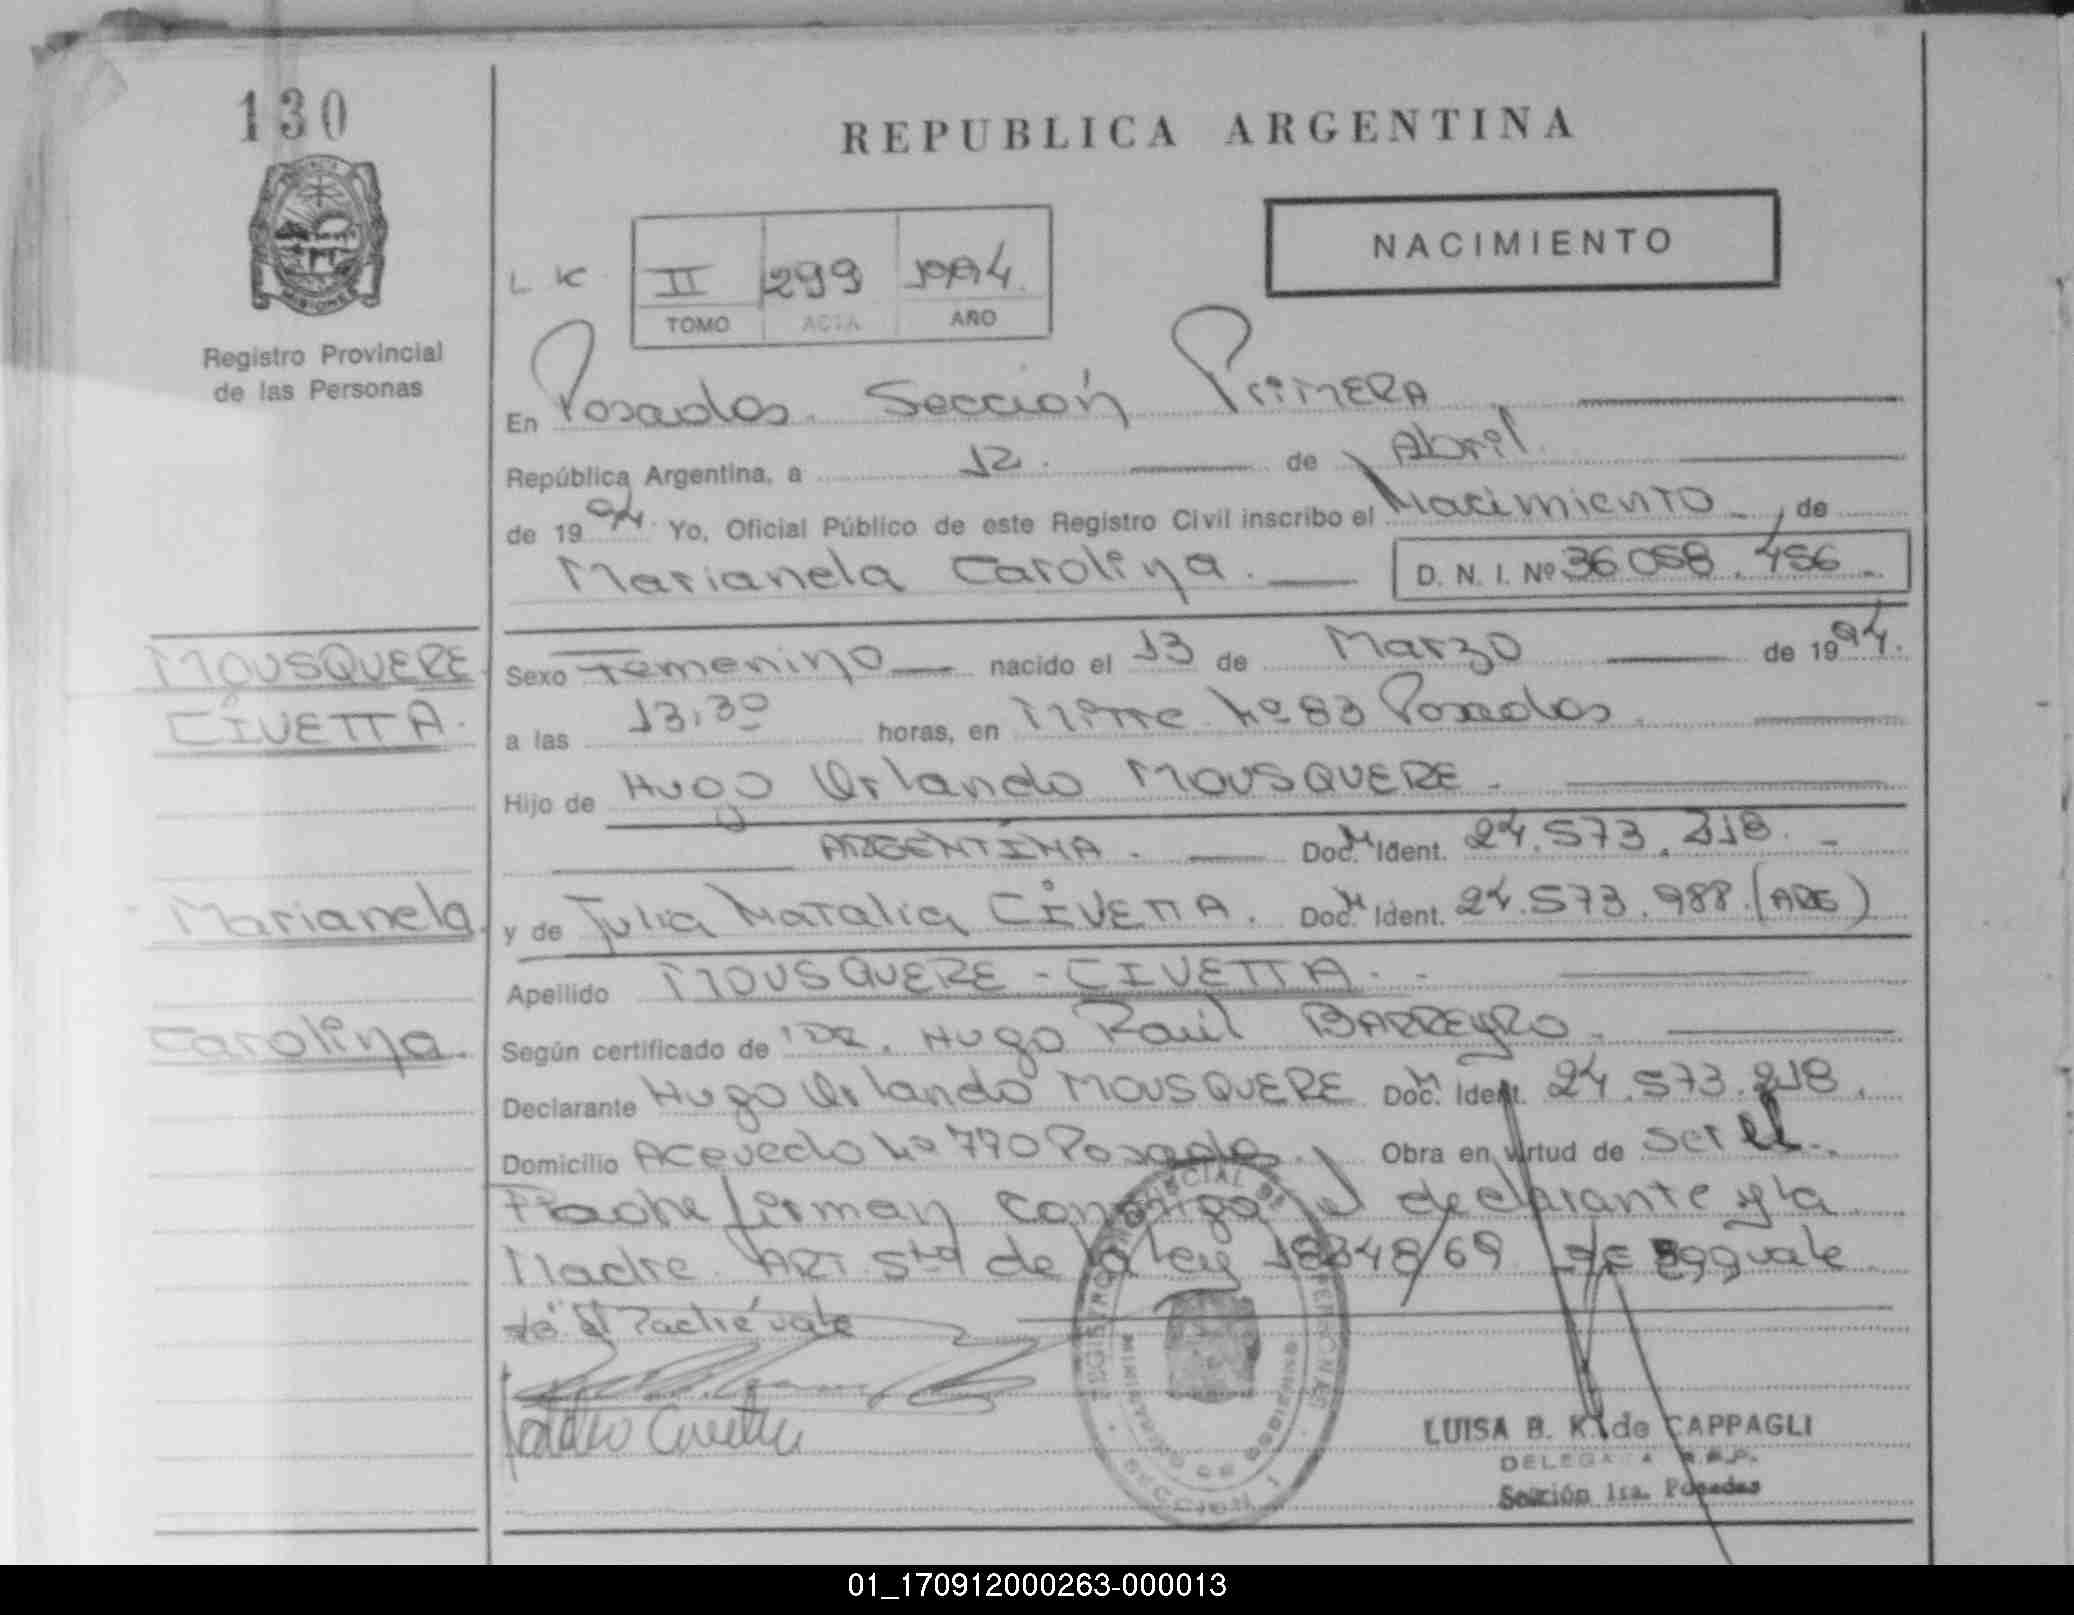 130
REPUBLICA ARGENTINA
NACIMIENTO
L K II 299 1994.
TOMO ACTA AÑO
Registro Provincial
de las Personas
En Posadas. Sección Primera
República Argentina, a 12. de Abril.
de 1994. Yo, Oficial Público de este Registro Civil inscribo el Nacimiento, de
Marianela Carolina. D. N. I. Nº 36.058.456.
MOUSQUERE
Sexo Femenino nacido el 13 de Marzo de 1994.
CIVETTA.
a las 13,30 horas, en Mitre Nº 83 Posadas.
Hijo de Hugo Orlando MOUSQUERE.
ARGENTINA. Doc. M Ident. 24.573.218.
Marianela
y de Julia Natalia CIVETTA. Doc. M Ident. 24.573.988.(ARG)
Apellido MOUSQUERE - CIVETTA.
Carolina.
Según certificado de DR. Hugo Raúl BARREYRO.
Declarante Hugo Orlando MOUSQUERE Doc. M Ident. 24.573.218.
Domicilio Acevedo Nº 770 Posadas. Obra en virtud de ser el
Padre firman conmigo el declarante y la
Madre. ART. 5to de la ley 18348/69 vale
el Padre vale
REGISTRO PROVINCIAL DE LAS PERSONAS
MINISTERIO DE GOBIERNO
LUISA B. K. de CAPPAGLI
DELEGADA R.P.P.
Sección 1ra. Posadas
01_170912000263-000013